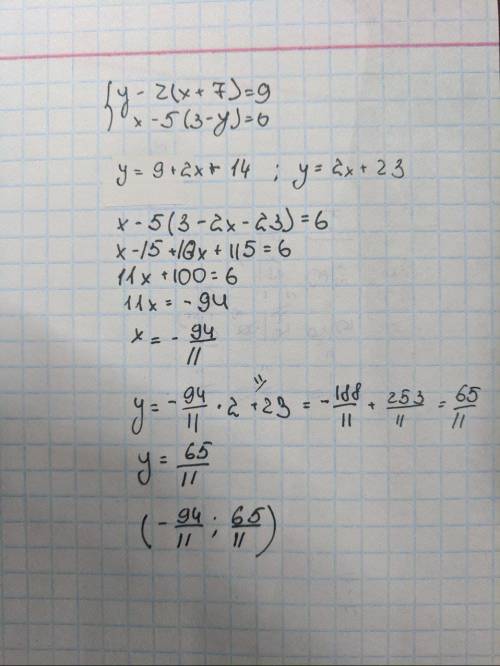 { y - 2(x + 7) = 9
x - 5(3 - y) = 6
y = 9 + 2x + 14 ; y = 2x + 23
x - 5(3 - 2x - 23) = 6
x - 15 + 10x + 115 = 6
11x + 100 = 6
11x = - 94
x = - 94/11
y = - 94/11 · 2 + 23 = - 188/11 + 253/11 = 65/11
y = 65/11
(- 94/11 ; 65/11)